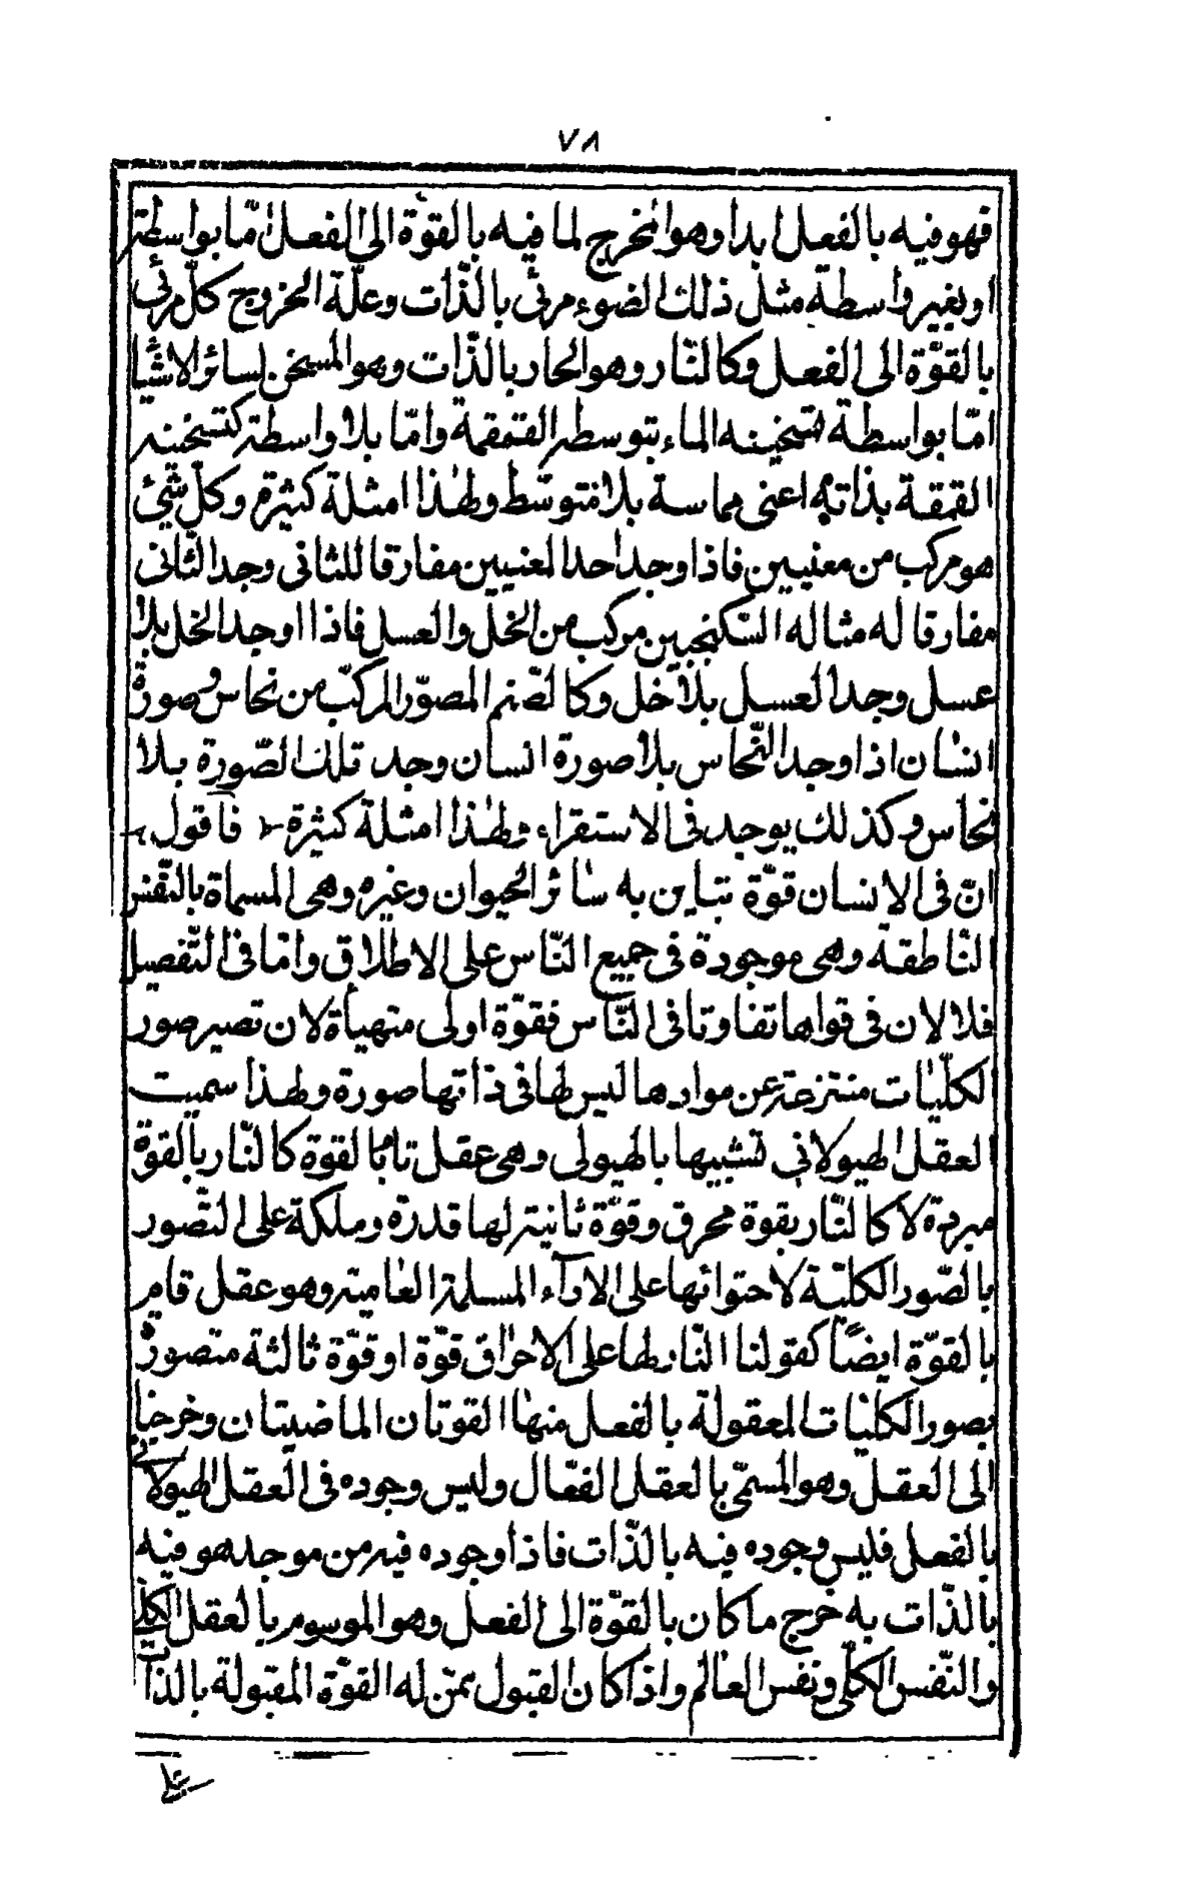 ٧٨
فهو فيه بالفعل ابدا وهو المخرج لما فيه بالقوّة الى الفعل امّا بواسطة
او بغير واسطة مثل ذلك الضوء مرئى بالذّات وعلّة الخروج كلّ مرئى
بالقوّة الى الفعل وكالنّار وهو الحار بالذّات وهو المسخن لسائر الاشيا
امّا بواسطة فتسخينه الماء بتوسط القمقمة وامّا بلا واسطة كتسخينه
القمقة بذاته اعنى مماسة بلا متوسّط ولهذا امثلة كثيرة وكلّ شئ
هو مركب من معنيين فاذا وجد احد المعنيين مفارقا للثانى وجد الثّانى
مفارقا له مثاله السّكنجبين مركب من الخلّ والعسل فاذا اوجد الخل بلا
عسل وجد العسل بلا خل وكالصّنم المصوّر المركّب من نحاس وصورة
انسان اذا وجد النّحاس بلا صورة انسان وجد تلك الصّورة بلا
نحاس وكذلك يوجد فى الاستقراء ولهذا امثلة كثيرة فاقول
انّ فى الانسان قوّة تباين به سائر الحيوان وغيره وهى المسماة بالنّفس
النّاطقة وهى موجودة فى جميع النّاس على الاطلاق وامّا فى التّفصيل
فلا لان فى قواها تفاوتا فى النّاس فقوّة اولى متهيأة لان تصير صور
الكلّيات منتزعة عن موادها ليس لها فى ذاتها صورة ولهذا سميت
العقل الهيولانى تشبيها بالهيولى وهى عقل تامّا بالقوة كالنّار بالقوّة
مبردة لا كالنّار بقوة محرق وقوّة ثانية لها قدرة وملكة على التّصور
بالصّور الكليّة لاحتوائها على الاراء المسلمة العامية وهو عقل قام
بالقوّة ايضًا كقولنا النّار لها على الاحراق قوّة او قوّة ثالثة متصورة
بصور الكليّات المعقولة بالفعل منها القوتان الماضيتان وخرجتا
الى العقل وهو المسمّى بالعقل الفعّال وليس وجوده فى العقل الهيولانى
بالفعل فليس وجوده فيه بالذّات فاذا وجوده فيه من موجد هو فيه
بالذّات به خرج ما كان بالقوّة الى الفعل وهو الموسوم بالعقل الكلّى
والنّفس الكلّى ونفس العالم واذا كان القبول ممّن له القوّة المقبولة بالذات